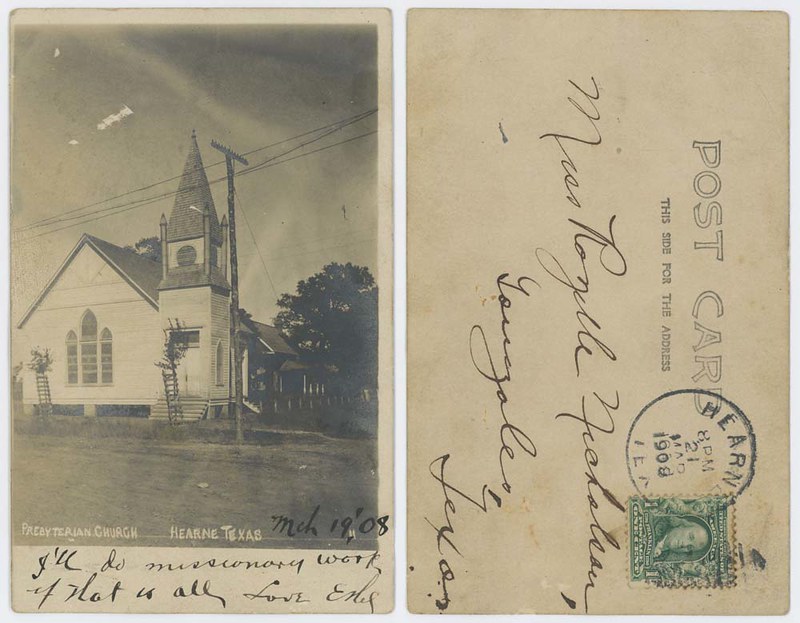 PRESBYTERIAN CHURCH HEARNE TEXAS Mch 19, '08
I'll do missionary work
if that is all, Love
POST CARD
THIS SIDE FOR THE ADDRESS
Miss Rozelle Nicholson,
Gonzales,
Texas
HEARNE
8 PM
21
MAR
1908
TEX